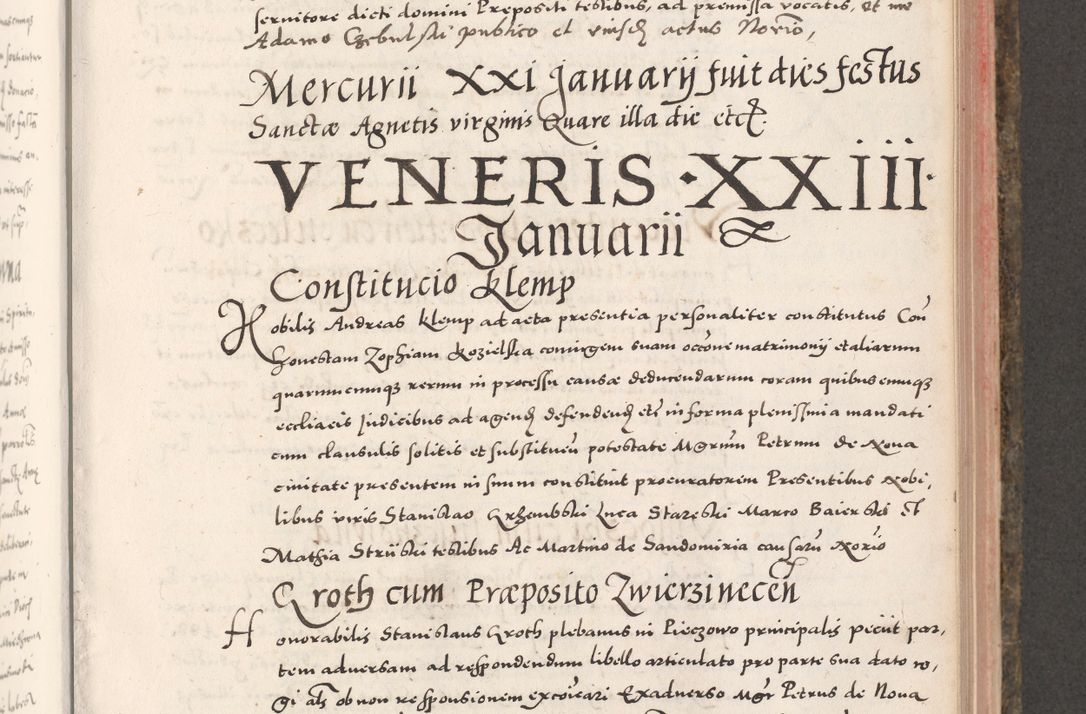 servitore dicti domini Prepositi testibus, ad premissa vocatis, et me
Adamo Czebulski publico et eiusdem actus Norio,
Mercurii XXI Januarij fuit dies festus
Sanctæ Agnetis virginis Quare illa die etc.
VENERIS · XXIII ·
Januarii
Constitucio Klemp
Nobilis Andreas Klemp ad acta presentia personaliter constitutus Con
honestam Zophiam Kozielska coniugem suam occone matrimonij et aliarum
quarumcumqz rerum in processu causæ deducendarum coram quibuscumqz
eccliacis Judicibus ad agend defendend etc in forma plenissima mandati
cum clausulis solitis et substituen potestate Mgrum Petrum de Nova
civitate presentem in suum constituit procuratorem Presentibus Nobi,
libus viris Stanislao Grzembski Luca Stareski Marco Baierski et
Mathia Struski testibus Ac Martino de Sandomiria causaru Norio
Groth cum Præposito Zwierzinecen
Honorabilis Stanislaus Groth plebanus in Pieczowo principalis peciit par,
tem adversam ad respondendum libello articulato pro parte sua dato co,
gi als ob non responsionem excoicari Exadverso Mgr Petrus de Nova